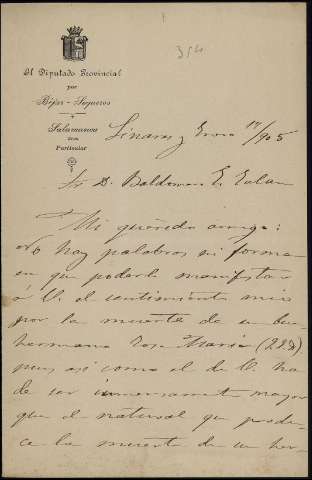 354
El Diputado Provincial
por
Béjar-Sequeros
Salamanca
Particular
Linares y Enero 17/905
Sr. D. Baldomero E.
Mi querido amigo:
No hay palabras ni forma
en que poderle manifestar
á V. el sentimiento mio
por la muerte de su
hermana Maria (
pues así como el de V. ha
de ser inmensamente mayor
que el natural que produ-
ce la muerte de un her-